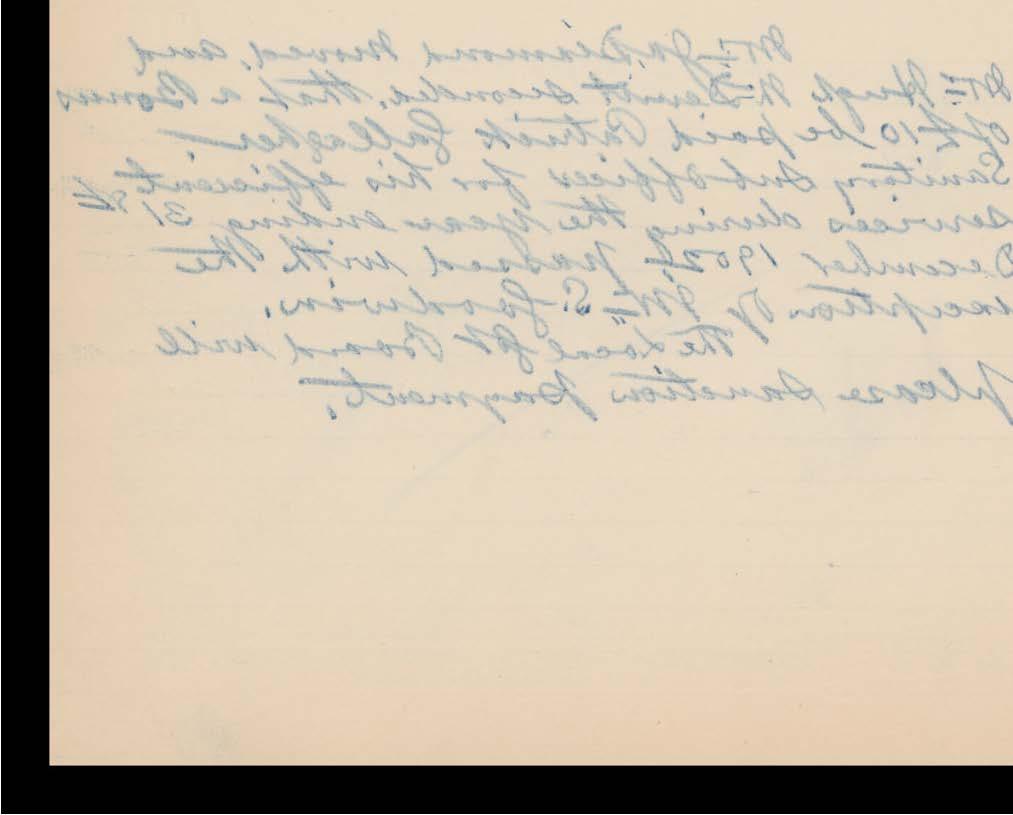 Mr Jas Diamond moved, and
Mr Hugh McDevitt seconded, that a Bonus
of £10 be paid Patrick Gallagher
Sanitary Sub Officer for his efficient
services during the year ending 31st
December 1904, passed with the
exception of Mr S. Goodwin.
The Local Gt Board will
please sanction payment.